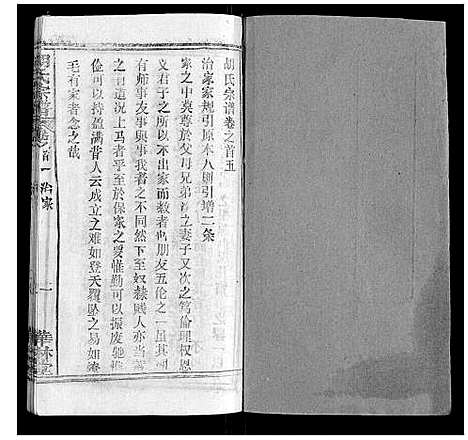 胡氏宗谱卷之首五
治家家规引原本八则引增二条
家之中莫尊於父母兄弟次之妻子又次之篤倫理权恩
义君子之所以不出家而教者也朋友五伦之一而
有师事友事與事我者之不同然下至奴隸賤人亦当薄
之一道况上焉者乎至於保家之要惟勤可以振废弛惟
俭可以持盈满昔人云成立之难如登天覆坠之易如燎
毛有家者念之哉
胡氏宗谱 卷之首一 治家
一
華林堂